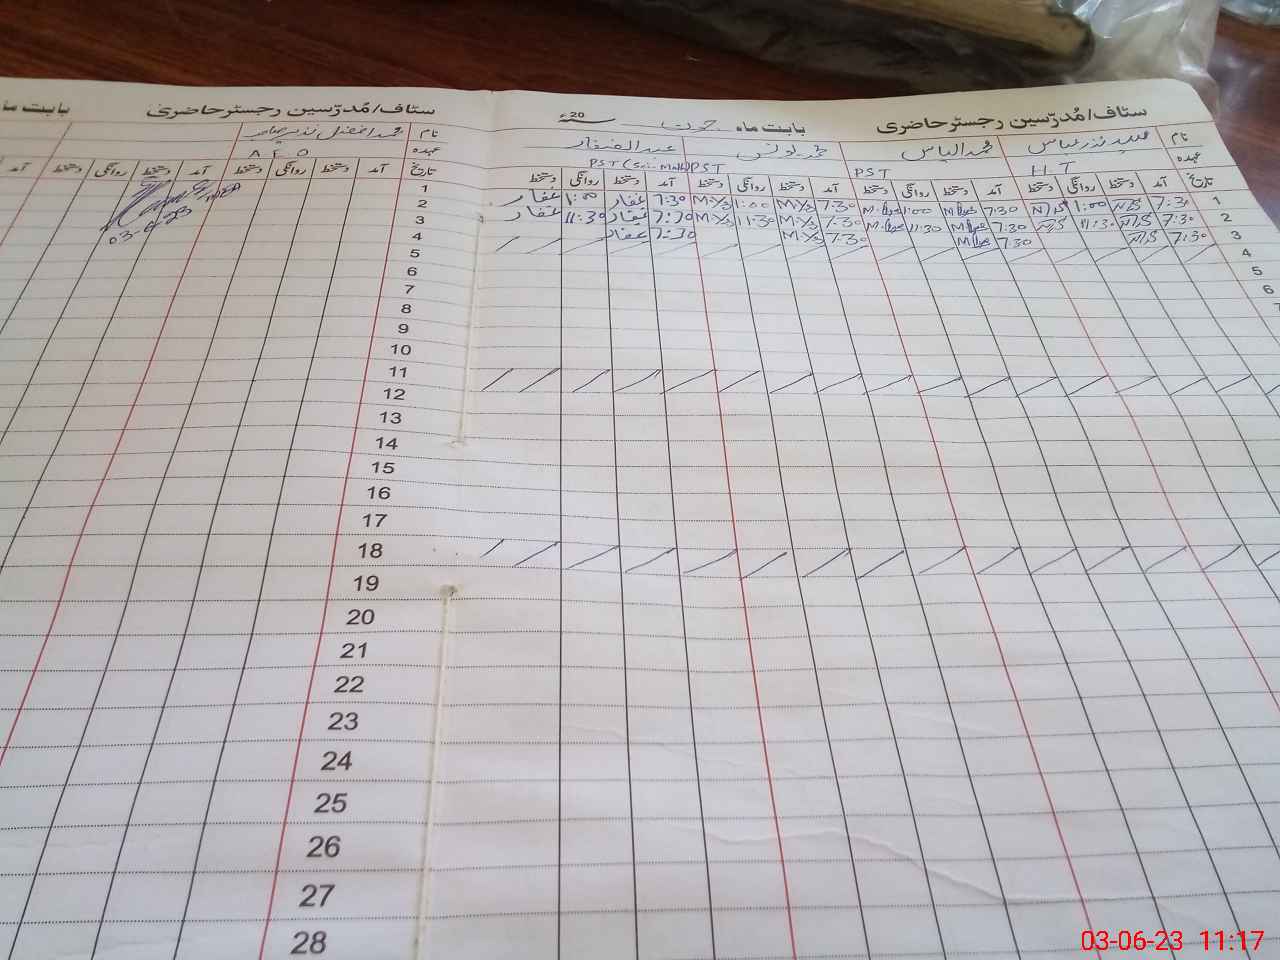 سٹاف/مُدرّسین رجسٹرحاضری بابت ماہ جون 20
نام محمد الیاس محمد یونس عبدالغفار
عہدہ H.T PST PST PST (Sci-Math)
تاریخ آمد دستخط روانگی دستخط آمد دستخط روانگی دستخط آمد دستخط روانگی دستخط آمد دستخط روانگی دستخط
1 7:30 N/S 1:00 N/S 7:30 1:00 7:30 M.Y/S 1:00 M.Y/S 7:30 غفار 1:00 غفار
2 7:30 N/S 11:30 N/S 7:30 11:30 7:30 M.Y/S 11:30 M.Y/S 7:30 غفار 11:30 غفار
3 7:30 N/S 7:30 7:30 M.Y/S 7:30 غفار
4
5
6
7
سٹاف/مُدرّسین رجسٹرحاضری بابت ما
نام محمد افضل
عہدہ AEO
تاریخ آمد دستخط روانگی دستخط آمد دستخط روانگی دستخط آمد
1
2
3
4
5
6
7
8
9
10
11
12
13
14
15
16
17
18
19
20
21
22
23
24
25
26
27
28
03-6-23
03-06-23 11:17